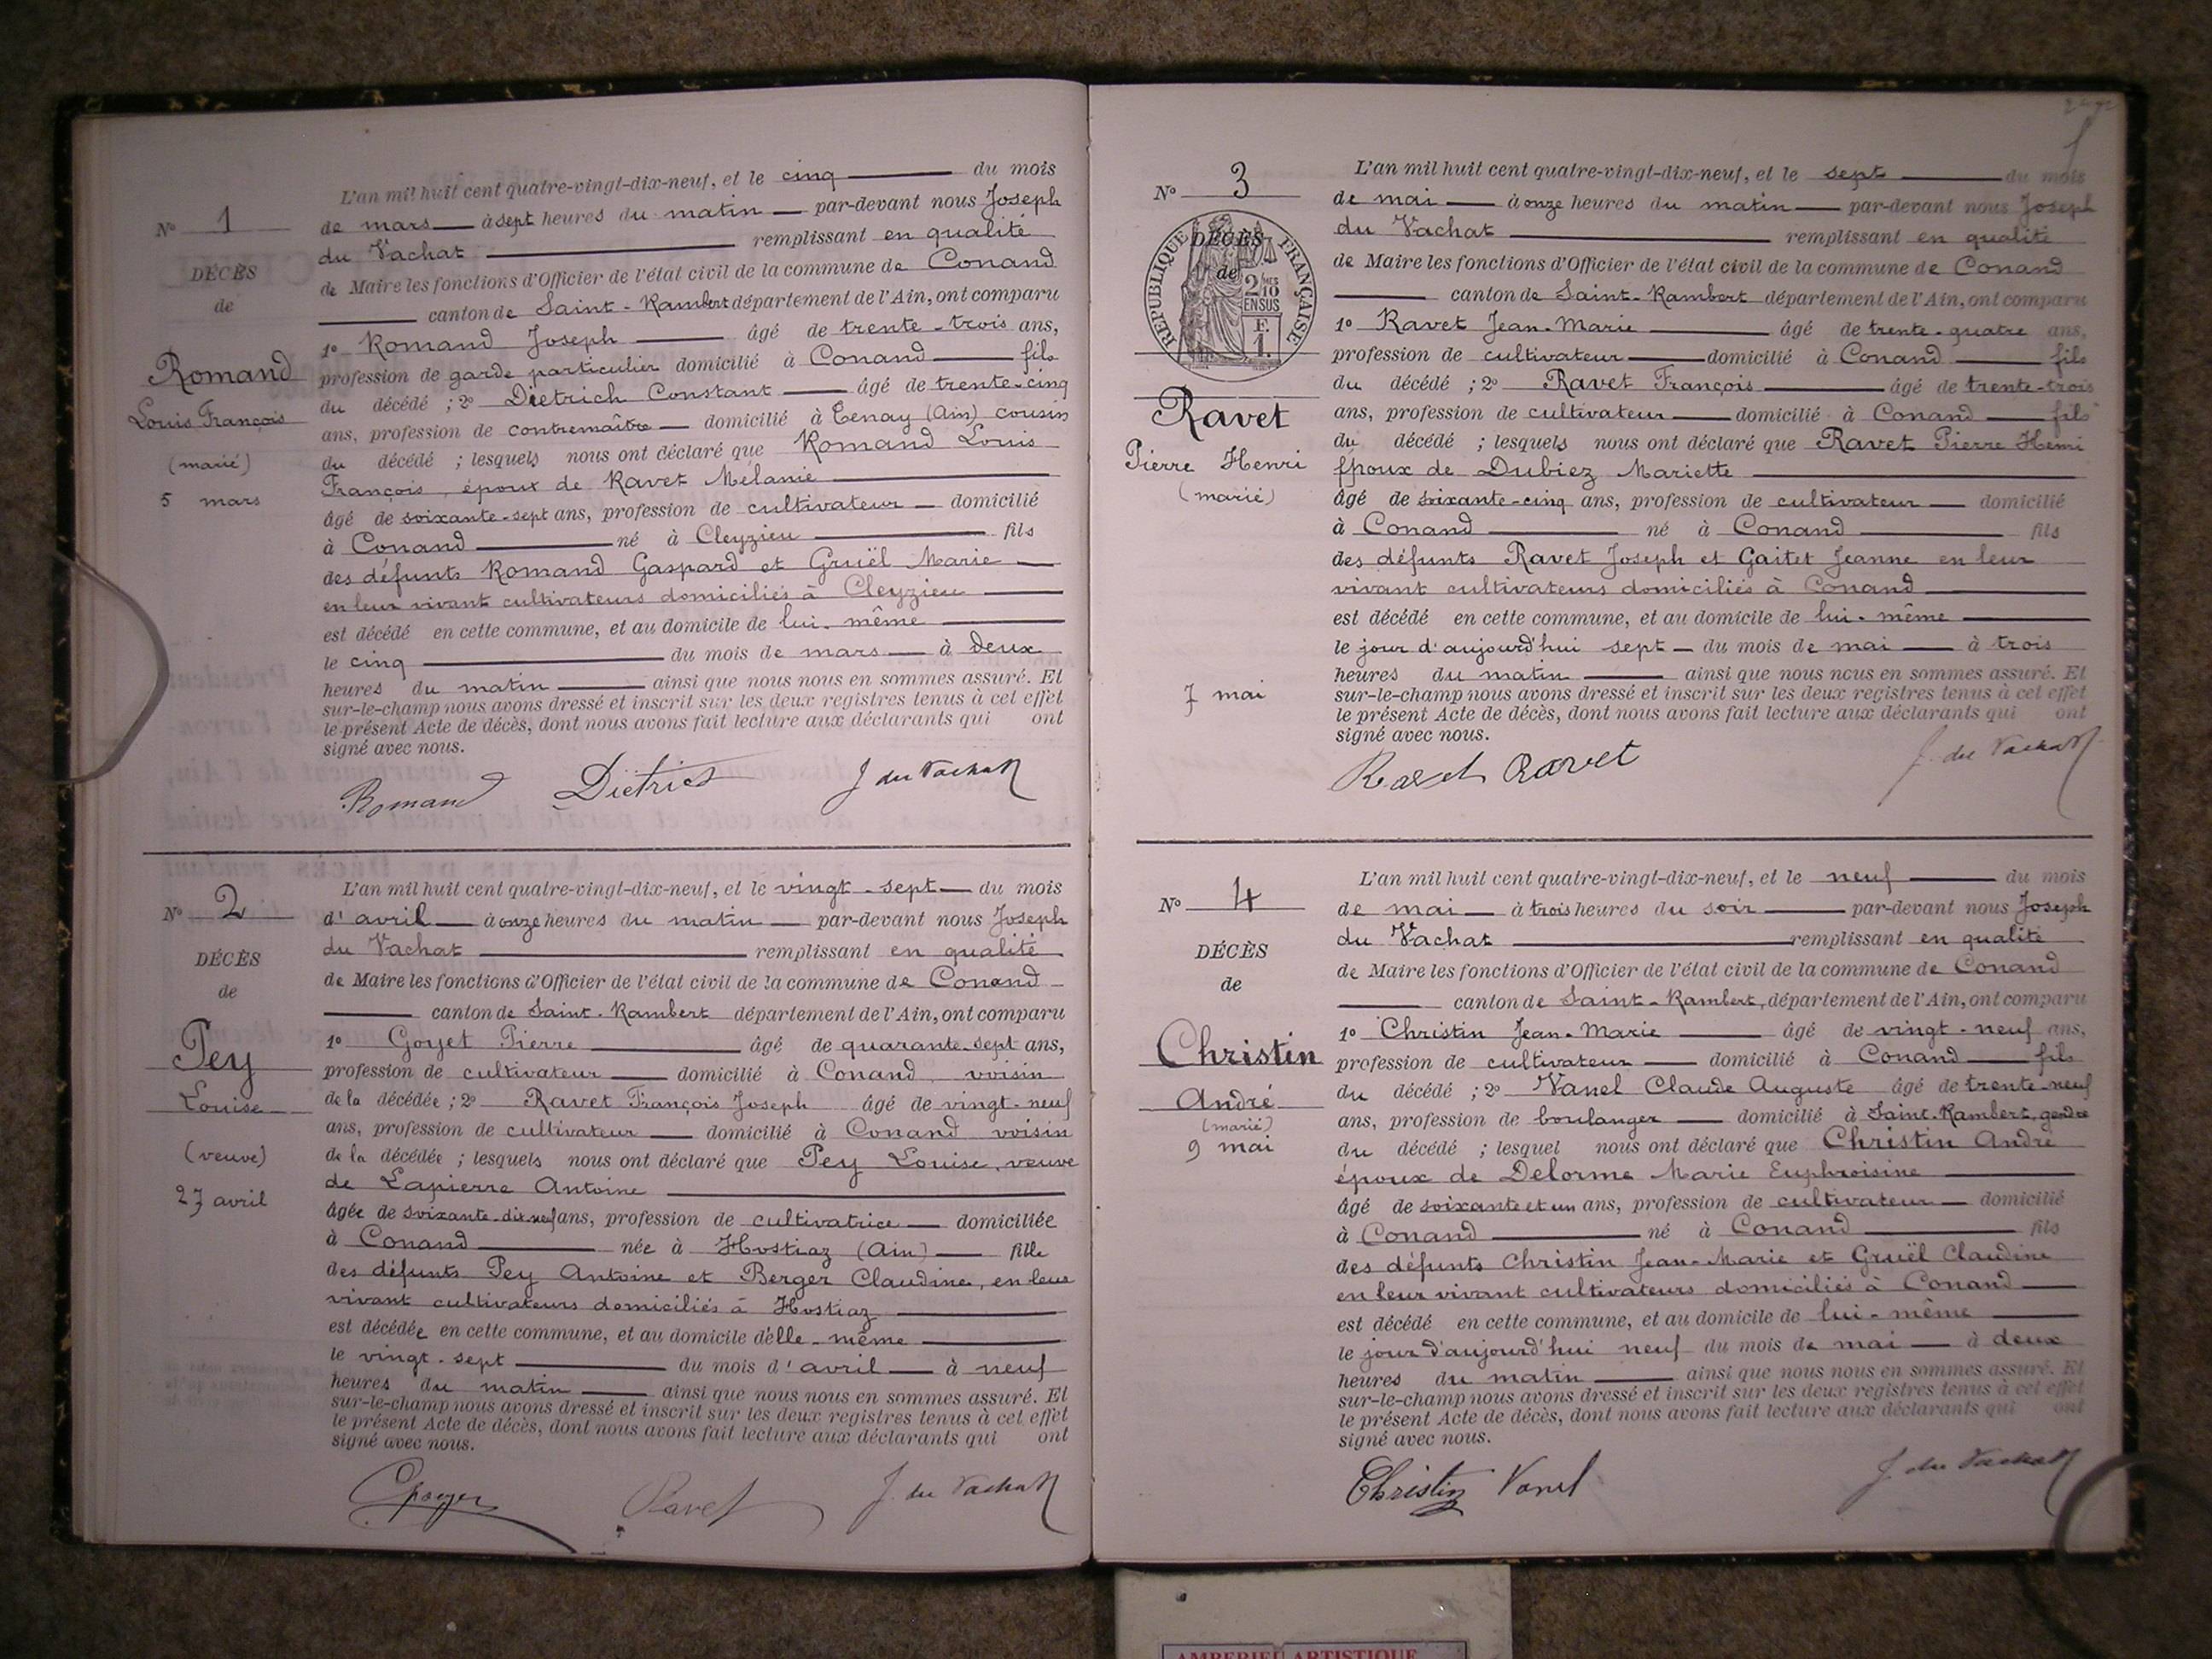 N° 1
DÉCÈS
de
Romand
Louis François
(marié)
5 mars
L'an mil huit cent quatre-vingt-dix-neuf, et le cinq du mois
de mars à sept heures du matin par-devant nous Joseph
du Vachat remplissant en qualité
de Maire les fonctions d'Officier de l'état civil de la commune de Conand
canton de Saint-Rambert département de l'Ain, ont comparu
1° Romand Joseph âgé de trente-trois ans,
profession de garde particulier domicilié à Conand fils
du décédé ; 2° Dietrich Constant âgé de trente-cinq
ans, profession de contremaître domicilié à Tenay (Ain) cousin
du décédé ; lesquels nous ont déclaré que Romand Louis
François, époux de Ravet Mélanie
âgé de soixante-sept ans, profession de cultivateur domicilié
à Conand né à Cleyzieu fils
des défunts Romand Gaspard et Gruël Marie
en leur vivant cultivateurs domiciliés à Cleyzieu
est décédé en cette commune, et au domicile de lui-même
le cinq du mois de mars à deux
heures du matin ainsi que nous nous en sommes assuré. Et
sur-le-champ nous avons dressé et inscrit sur les deux registres tenus à cet effet
le présent Acte de décès, dont nous avons fait lecture aux déclarants qui ont
signé avec nous.
Romand Dietrich J. du Vachat
N° 2
DÉCÈS
de
Pey
Louise
(veuve)
27 avril
L'an mil huit cent quatre-vingt-dix-neuf, et le vingt-sept du mois
d'avril à onze heures du matin par-devant nous Joseph
du Vachat remplissant en qualité
de Maire les fonctions d'Officier de l'état civil de la commune de Conand
canton de Saint-Rambert département de l'Ain, ont comparu
1° Goyet Pierre âgé de quarante-sept ans,
profession de cultivateur domicilié à Conand voisin
de la décédée ; 2° Ravet François Joseph âgé de vingt-neuf
ans, profession de cultivateur domicilié à Conand voisin
de la décédée ; lesquels nous ont déclaré que Pey Louise, veuve
de Lapierre Antoine
âgée de soixante-dix neuf ans, profession de cultivatrice domiciliée
à Conand née à Hostiaz (Ain) fille
des défunts Pey Antoine et Berger Claudine, en leur
vivant cultivateurs domiciliés à Hostiaz
est décédée en cette commune, et au domicile d'elle-même
le vingt-sept du mois d'avril à neuf
heures du matin ainsi que nous nous en sommes assuré. Et
sur-le-champ nous avons dressé et inscrit sur les deux registres tenus à cet effet
le présent Acte de décès, dont nous avons fait lecture aux déclarants qui ont
signé avec nous.
Ravet J. du Vachat
N° 3
RÉPUBLIQUE FRANÇAISE
DÉCÈS
de
2/10
EN SUS
F.
1.
Ravet
Pierre Henri
(marié)
7 mai
L'an mil huit cent quatre-vingt-dix-neuf, et le sept du mois
de mai à onze heures du matin par-devant nous Joseph
du Vachat remplissant en qualité
de Maire les fonctions d'Officier de l'état civil de la commune de Conand
canton de Saint-Rambert département de l'Ain, ont comparu
1° Ravet Jean-Marie âgé de trente-quatre ans,
profession de cultivateur domicilié à Conand fils
du décédé ; 2° Ravet François âgé de trente-trois
ans, profession de cultivateur domicilié à Conand fils
du décédé ; lesquels nous ont déclaré que Ravet Pierre Henri
époux de Dubiez Mariette
âgé de soixante-cinq ans, profession de cultivateur domicilié
à Conand né à Conand fils
des défunts Ravet Joseph et Gaitet Jeanne en leur
vivant cultivateurs domiciliés à Conand
est décédé en cette commune, et au domicile de lui-même
le jour d'aujourd'hui sept du mois de mai à trois
heures du matin ainsi que nous nous en sommes assuré. Et
sur-le-champ nous avons dressé et inscrit sur les deux registres tenus à cet effet
le présent Acte de décès, dont nous avons fait lecture aux déclarants qui ont
signé avec nous.
Ravet Ravet J. du Vachat
N° 4
DÉCÈS
de
Christin
André
(marié)
9 mai
L'an mil huit cent quatre-vingt-dix-neuf, et le neuf du mois
de mai à trois heures du soir par-devant nous Joseph
du Vachat remplissant en qualité
de Maire les fonctions d'Officier de l'état civil de la commune de Conand
canton de Saint-Rambert, département de l'Ain, ont comparu
1° Christin Jean-Marie âgé de vingt-neuf ans,
profession de cultivateur domicilié à Conand fils
du décédé ; 2° Vanel Claude Auguste âgé de trente-neuf
ans, profession de boulanger domicilié à Saint-Rambert, gendre
du décédé ; lesquel nous ont déclaré que Christin André
époux de Delorme Marie Euphroisine
âgé de soixante et un ans, profession de cultivateur domicilié
à Conand né à Conand fils
des défunts Christin Jean-Marie et Gruël Claudine
en leur vivant cultivateurs domiciliés à Conand
est décédé en cette commune, et au domicile de lui-même
le jour d'aujourd'hui neuf du mois de mai à deux
heures du matin ainsi que nous nous en sommes assuré. Et
sur-le-champ nous avons dressé et inscrit sur les deux registres tenus à cet effet
le présent Acte de décès, dont nous avons fait lecture aux déclarants qui ont
signé avec nous.
Christin Vanel J. du Vachat
AMBERIEU ARTISTIQUE